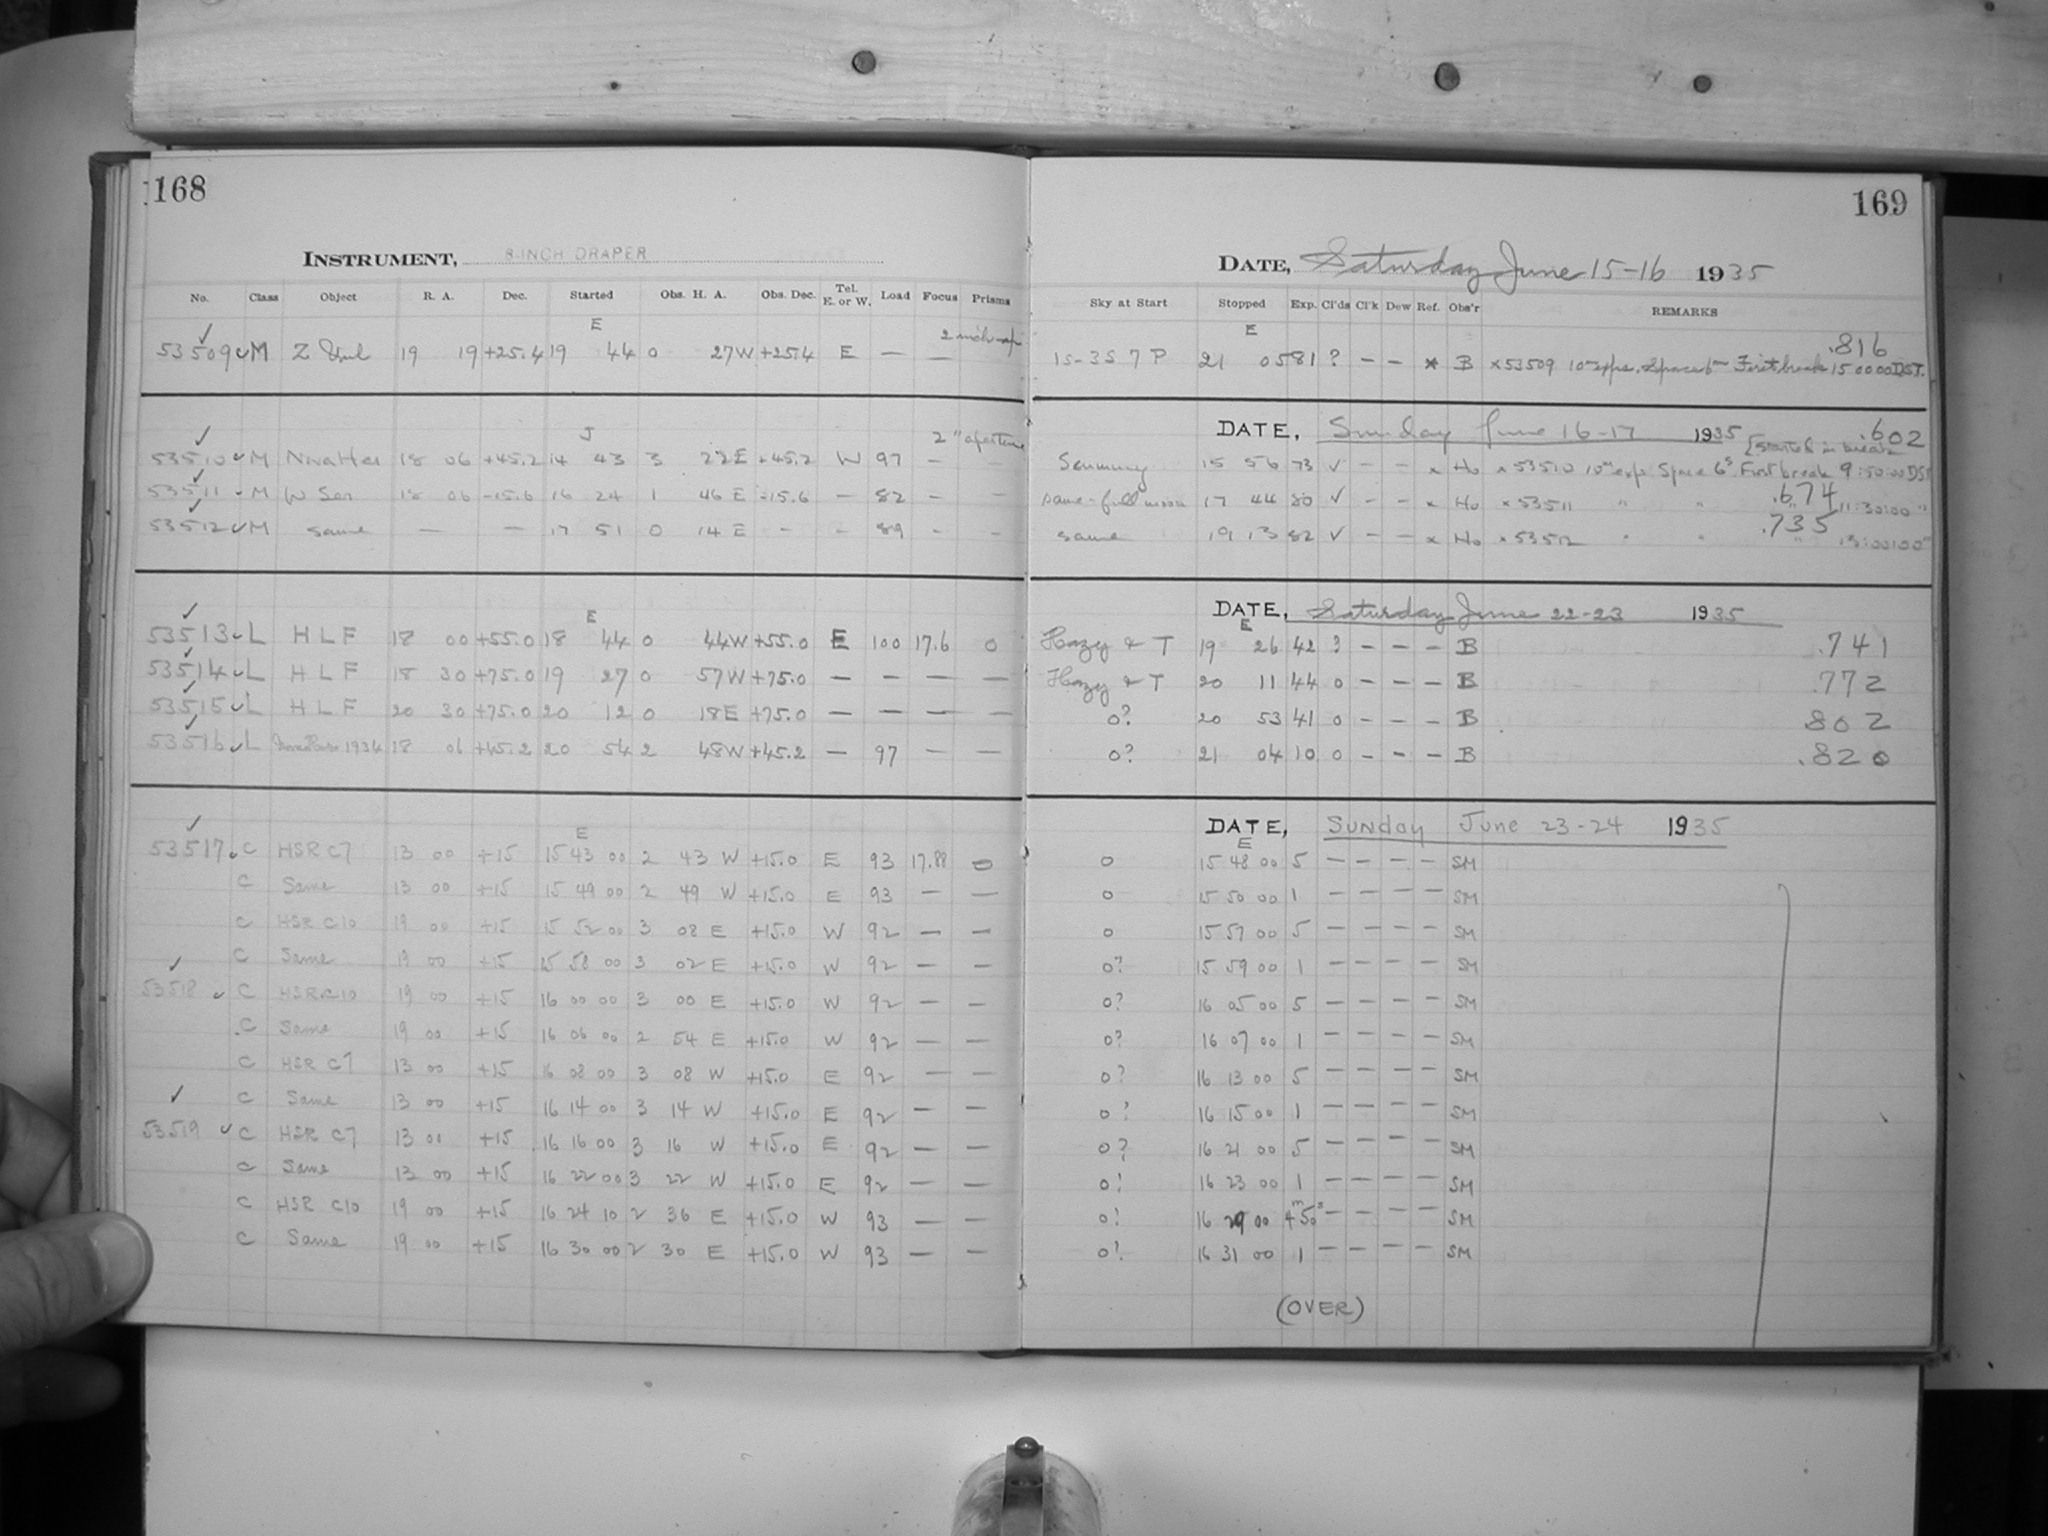 168
INSTRUMENT, 8-INCH DRAPER
No. Class Object R. A. Dec. Started Obs. H. A. Obs. Dec. Tel. E. or W. Load Focus Prisms
E
53509 M Z Vul 19 19 +25.4 19 44 0 27W +25.4 E — —
J 2" aperture
53510 M 18 06 +45.2 14 43 3 22E +45.2 W 97 – –
53511 M W Ser 18 06 -15.6 16 24 1 46 E -15.6 – 82 – –
53512 M same — — 17 51 0 14 E – – 89 – –
E
53513 L H L F 18 00 +55.0 18 44 0 44W +55.0 E 100 17.6 0
53514 L H L F 18 30 +75.0 19 27 0 57W +75.0 — — — —
53515 L H L F 20 30 +75.0 20 12 0 18E +75.0 — — — —
53516 L 1934 18 06 +45.2 20 54 2 48W +45.2 — 97 — —
E
53517 C HSR C7 13 00 +15 15 43 00 2 43 W +15.0 E 93 17.88 0
C Same 13 00 +15 15 49 00 2 49 W +15.0 E 93 — —
C HSR C10 19 00 +15 15 52 00 3 08 E +15.0 W 92 — —
C Same 19 00 +15 15 58 00 3 02 E +15.0 W 92 — —
53518 C HSR C10 19 00 +15 16 00 00 3 00 E +15.0 W 92 — —
C Same 19 00 +15 16 06 00 2 54 E +15.0 W 92 — —
C HSR C7 13 00 +15 16 08 00 3 08 W +15.0 E 92 — —
C Same 13 00 +15 16 14 00 3 14 W +15.0 E 92 — —
53519 C HSR C7 13 00 +15 16 16 00 3 16 W +15.0 E 92 — —
C Same 13 00 +15 16 22 00 3 22 W +15.0 E 92 — —
C HSR C10 19 00 +15 16 24 10 2 36 E +15.0 W 93 — —
C Same 19 00 +15 16 30 00 2 30 E +15.0 W 93 — —
169
DATE, Saturday June 15-16 1935
Sky at Start Stopped Exp. Cl'ds Cl'k Dew Ref. Obs'r REMARKS
E .816
1S-3S 7 P 21 05 81 ? – – * B x53509 10m exps. Space 6m First break 15 00 00 D.S.T.
DATE, Sunday June 16-17 1935 .602
[started in break
15 56 73 ✓ – – x Ho x 53510 10m exps Space 6s First break 9:50:00 DST
.674
same - full moon 17 44 80 ✓ – – x Ho x 53511 " " " 11:30:00 "
.735
same 19 13 82 ✓ – – x Ho x 53512 " " " 13:00:00 "
DATE, Saturday June 22-23 1935
E
Hazy & T 19 26 42 ? – – – B .741
Hazy & T 20 11 44 0 – – – B .772
0? 20 53 41 0 – – – B .802
0? 21 04 10 0 – – – B .820
DATE, Sunday June 23-24 1935
E
0 15 48 00 5 — — — — SM
0 15 50 00 1 — — — — SM
0 15 57 00 5 — — — — SM
0? 15 59 00 1 — — — — SM
0? 16 05 00 5 — — — — SM
0? 16 07 00 1 — — — — SM
0? 16 13 00 5 — — — — SM
0? 16 15 00 1 — — — — SM
0? 16 21 00 5 — — — — SM
0? 16 23 00 1 — — — — SM
0? 16 29 00 4m 50s — — — — SM
0? 16 31 00 1 — — — — SM
(OVER)